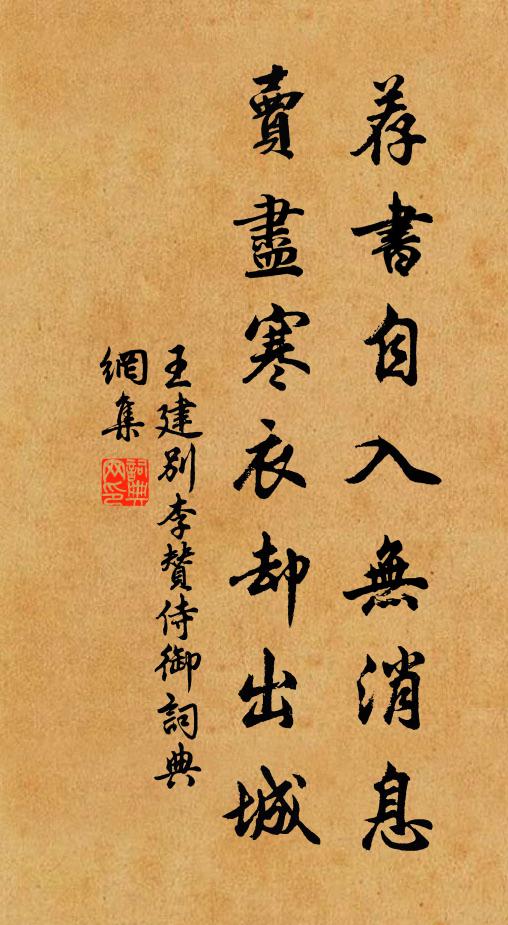 荐書自入無消息
賣盡寒衣却出城
王建别李贊侍御詞典
網集
詞典網印